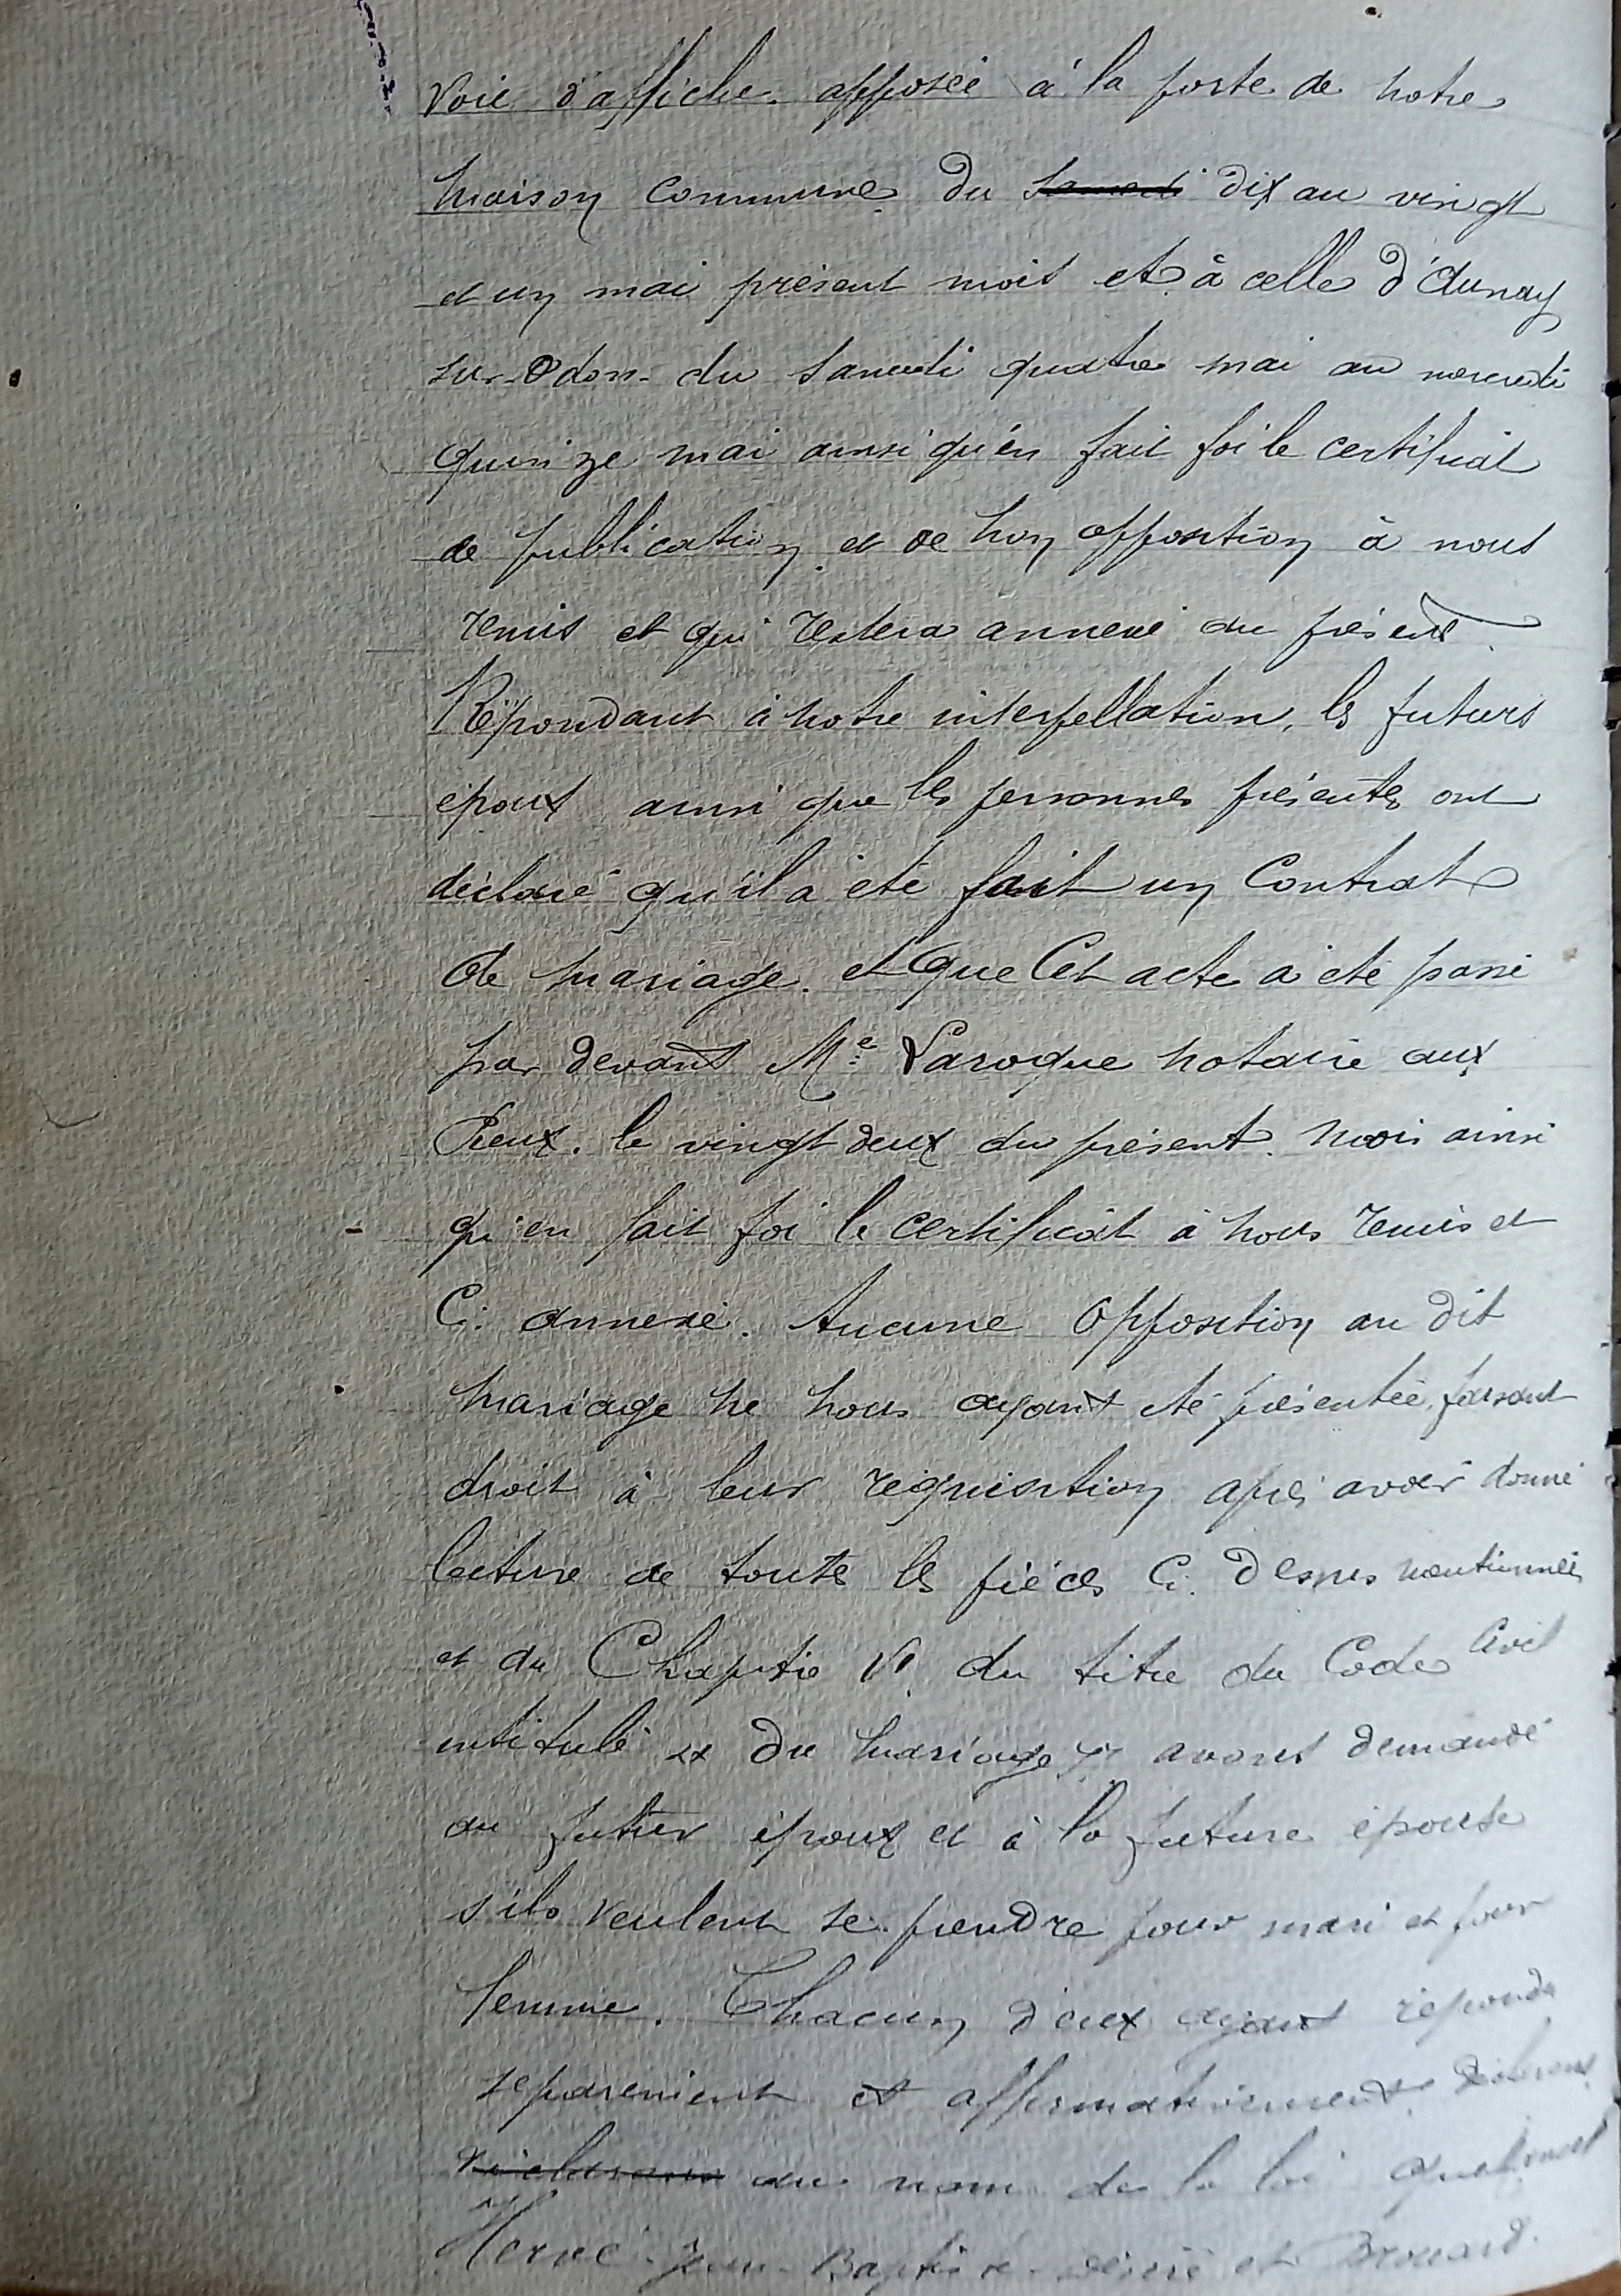 voie d'affiche. apposée à la porte de notre
maison commune du samedi dix au vingt
et un mai présent mois et à celle d'Aunay
sur-Odon- du samedi quatre mai au mercredi
quinze mai ainsi qu'en fait foi le certificat
de publication et de non opposition à nous
remis et qui restera annexé au présent.
Répondant à notre interpellation, les futurs
époux ainsi que les personnes présentes ont
déclaré qu'il a été fait un Contrat
de mariage. et que Cet acte a été passé
par devant Me Laroque notaire aux
Pieux. le vingt deux du présent mois ainsi
qu'en fait foi le certificat à nous remis et
Ci. annexé. Aucune opposition au dit
mariage ne nous ayant été présentée, faisant
droit à leur réquisition après avoir donné
lecture de toutes les pièces Ci. dessus mentionnées
et du Chapitre VI du titre du Code Civil
intitulé « Du mariage » avons demandé
au futur époux et à la future épouse
s'ils veulent se prendre pour mari et pour
femme. Chacun d'eux ayant répondu
séparément et affirmativement. Déclarons
déclarons au nom de la loi que
Hervé Jean-Baptiste Désiré et Brouard